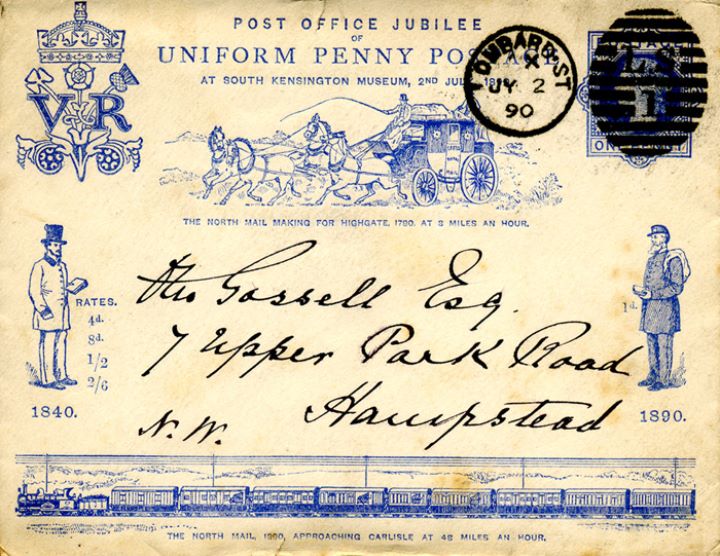 POST OFFICE JUBILEE
OF
UNIFORM PENNY POSTAGE
AT SOUTH KENSINGTON MUSEUM, 2ND JULY 18
VR
LOMBARD ST
X
JY 2
90
1
ONE PENNY
THE NORTH MAIL MAKING FOR HIGHGATE, 1790, AT 8 MILES AN HOUR.
RATES.
4d.
8d.
1/2
2/6
1840.
1d.
1890.
Gossell Esq.
7 Upper Park Road
Hampstead
N.W.
THE NORTH MAIL, 1890, APPROACHING CARLISLE AT 48 MILES AN HOUR.